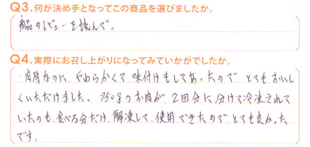 Q3.何が決め手となってこの商品を選びましたか。
商品のレビューを読んで。
Q4.実際にお召し上がりになってみていかがでしたか。
肉厚なのに、やわらかくて味付けもしてあったので とてもおいし
くいただけました。750gのお肉が、2回分に分けて冷凍されて
いたのも、食べる分だけ、解凍して、使用できたので とても良かった
です。